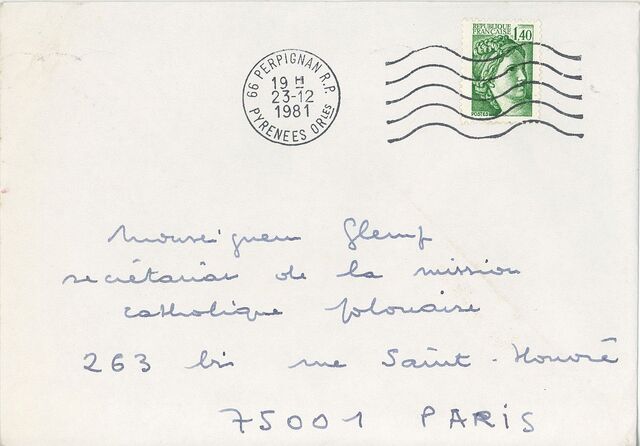 RÉPUBLIQUE FRANÇAISE
1,40
POSTES
66 PERPIGNAN R.P.
19 H
23-12
1981
PYRENEES ORLES
Monseigneur Glemp
secrétariat de la mission
catholique polonaise
263 bis rue Saint-Honoré
75001 PARIS